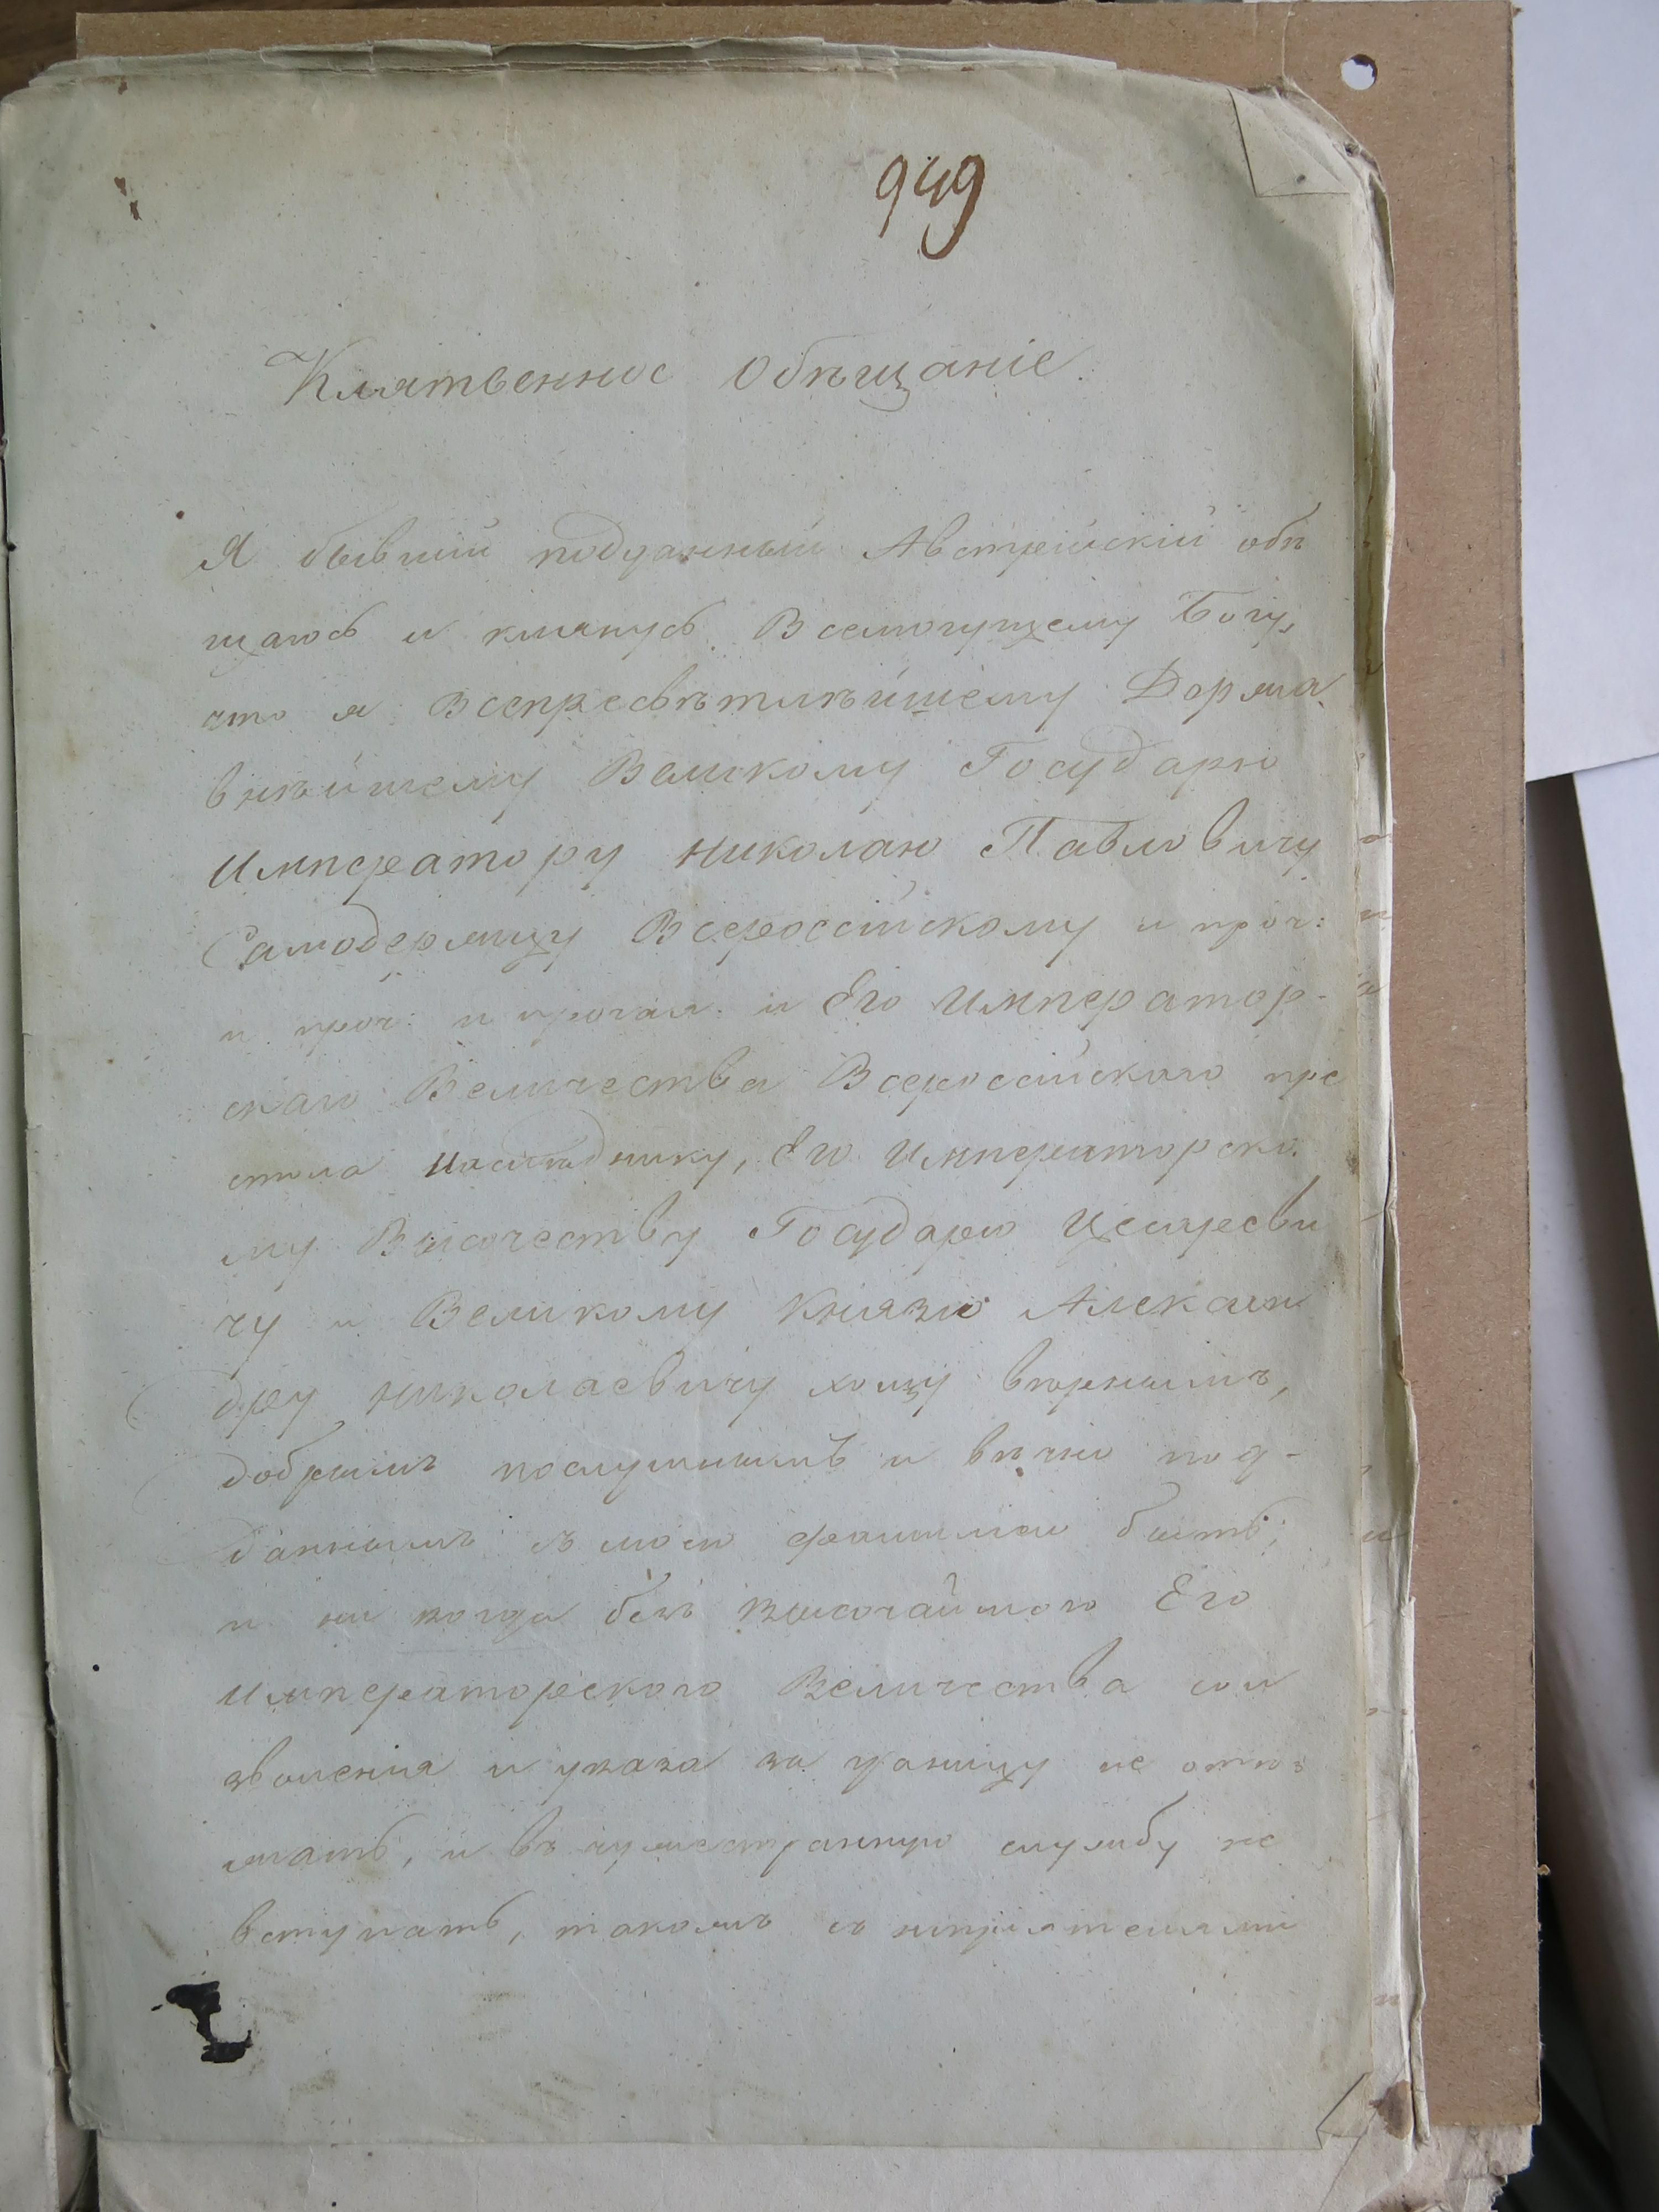 949
Клятвенное Обѣщаніе.
Я бывшій подданный Австрейскій обѣ
щаюсь и клянусь Всемогущему Богу,
что я Всепресвѣтлѣйшему Держа
внѣйшему Великому Государю
Императору Николаю Павловичу
Самодержцу Всероссійскому и проч:
и проч: и прочая. и Его Император-
скаго Величества Всероссійскаго пре
стола Наслѣднику, Его Императорско
му Высочеству Государю Цесареви
чу и Великому Князю Алексан
дру Николаевичу хощу вѣрнымъ,
добрымъ послушнымъ и вѣчно под-
даннымъ съ моею фамиліею быть;
и ни когда безъ высочайшаго Его
Императорскаго Величества соп
зволенія и указа за границу не отъѣз
жать, и въ чужестранную службу не
вступать, такожъ съ непріятелями